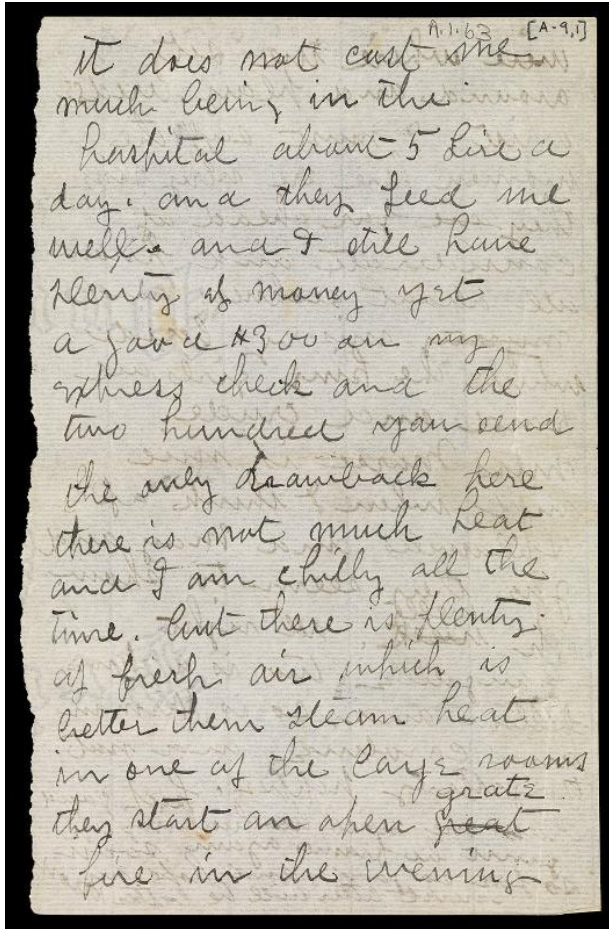 A.1.63 [A-9,1]
it does not cost me
much being in the
hospital about 5 Lire a
day. and they feed me
well. and I still have
plenty of money yet
a good $300 on my
express check and the
two hundred you send
the only drawback here
there is not much heat
and I am chilly all the
time. but there is plenty
of fresh air which is
better then steam heat
in one of the large rooms
grate
they start an open great
fire in the evening